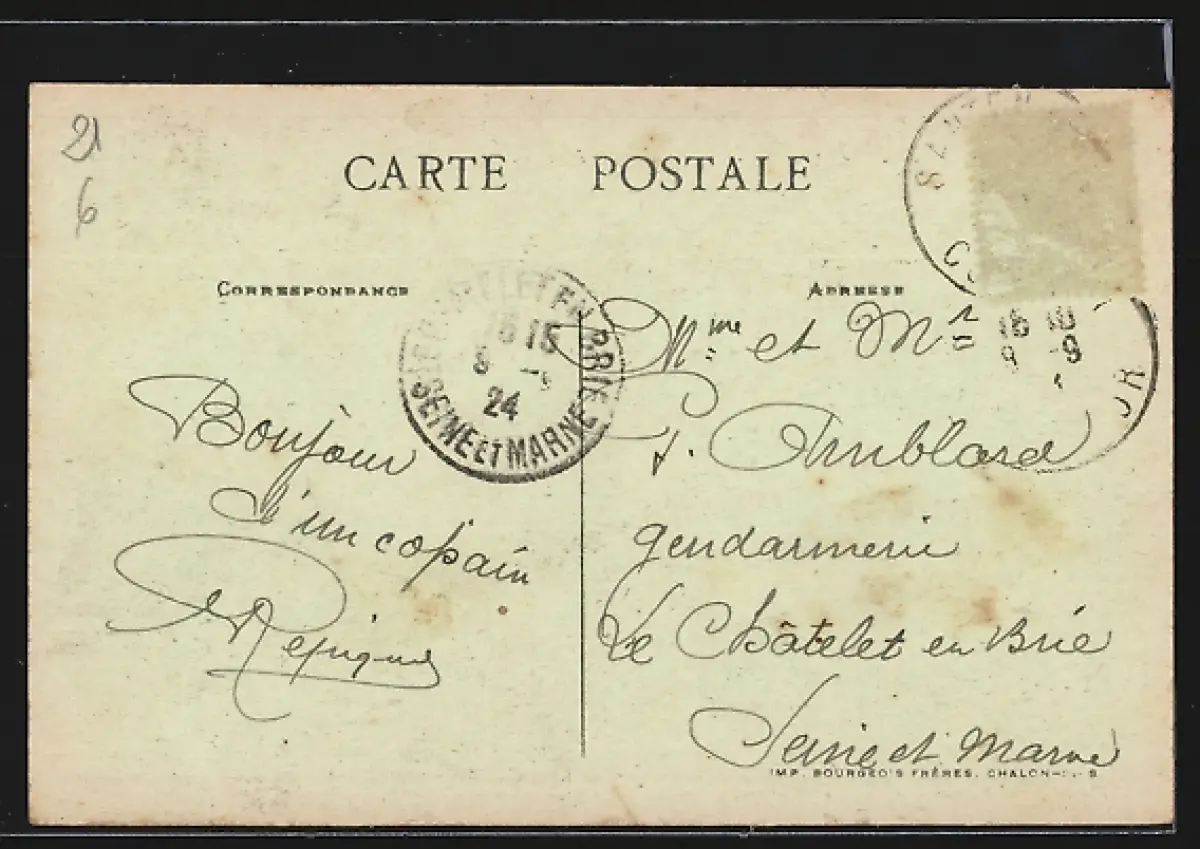 21
6
CARTE POSTALE
CORRESPONDANCE
ADRESSE
EN BRIE
15
8
24
SEINE ET MARNE
16
9
OR
Bonjour
d'un copain
Mme et Mr
P. Amblard
gendarmerie
Le Châtelet en Brie
Seine et Marne
IMP. BOURGEOIS FRÈRES, CHALON-S-S